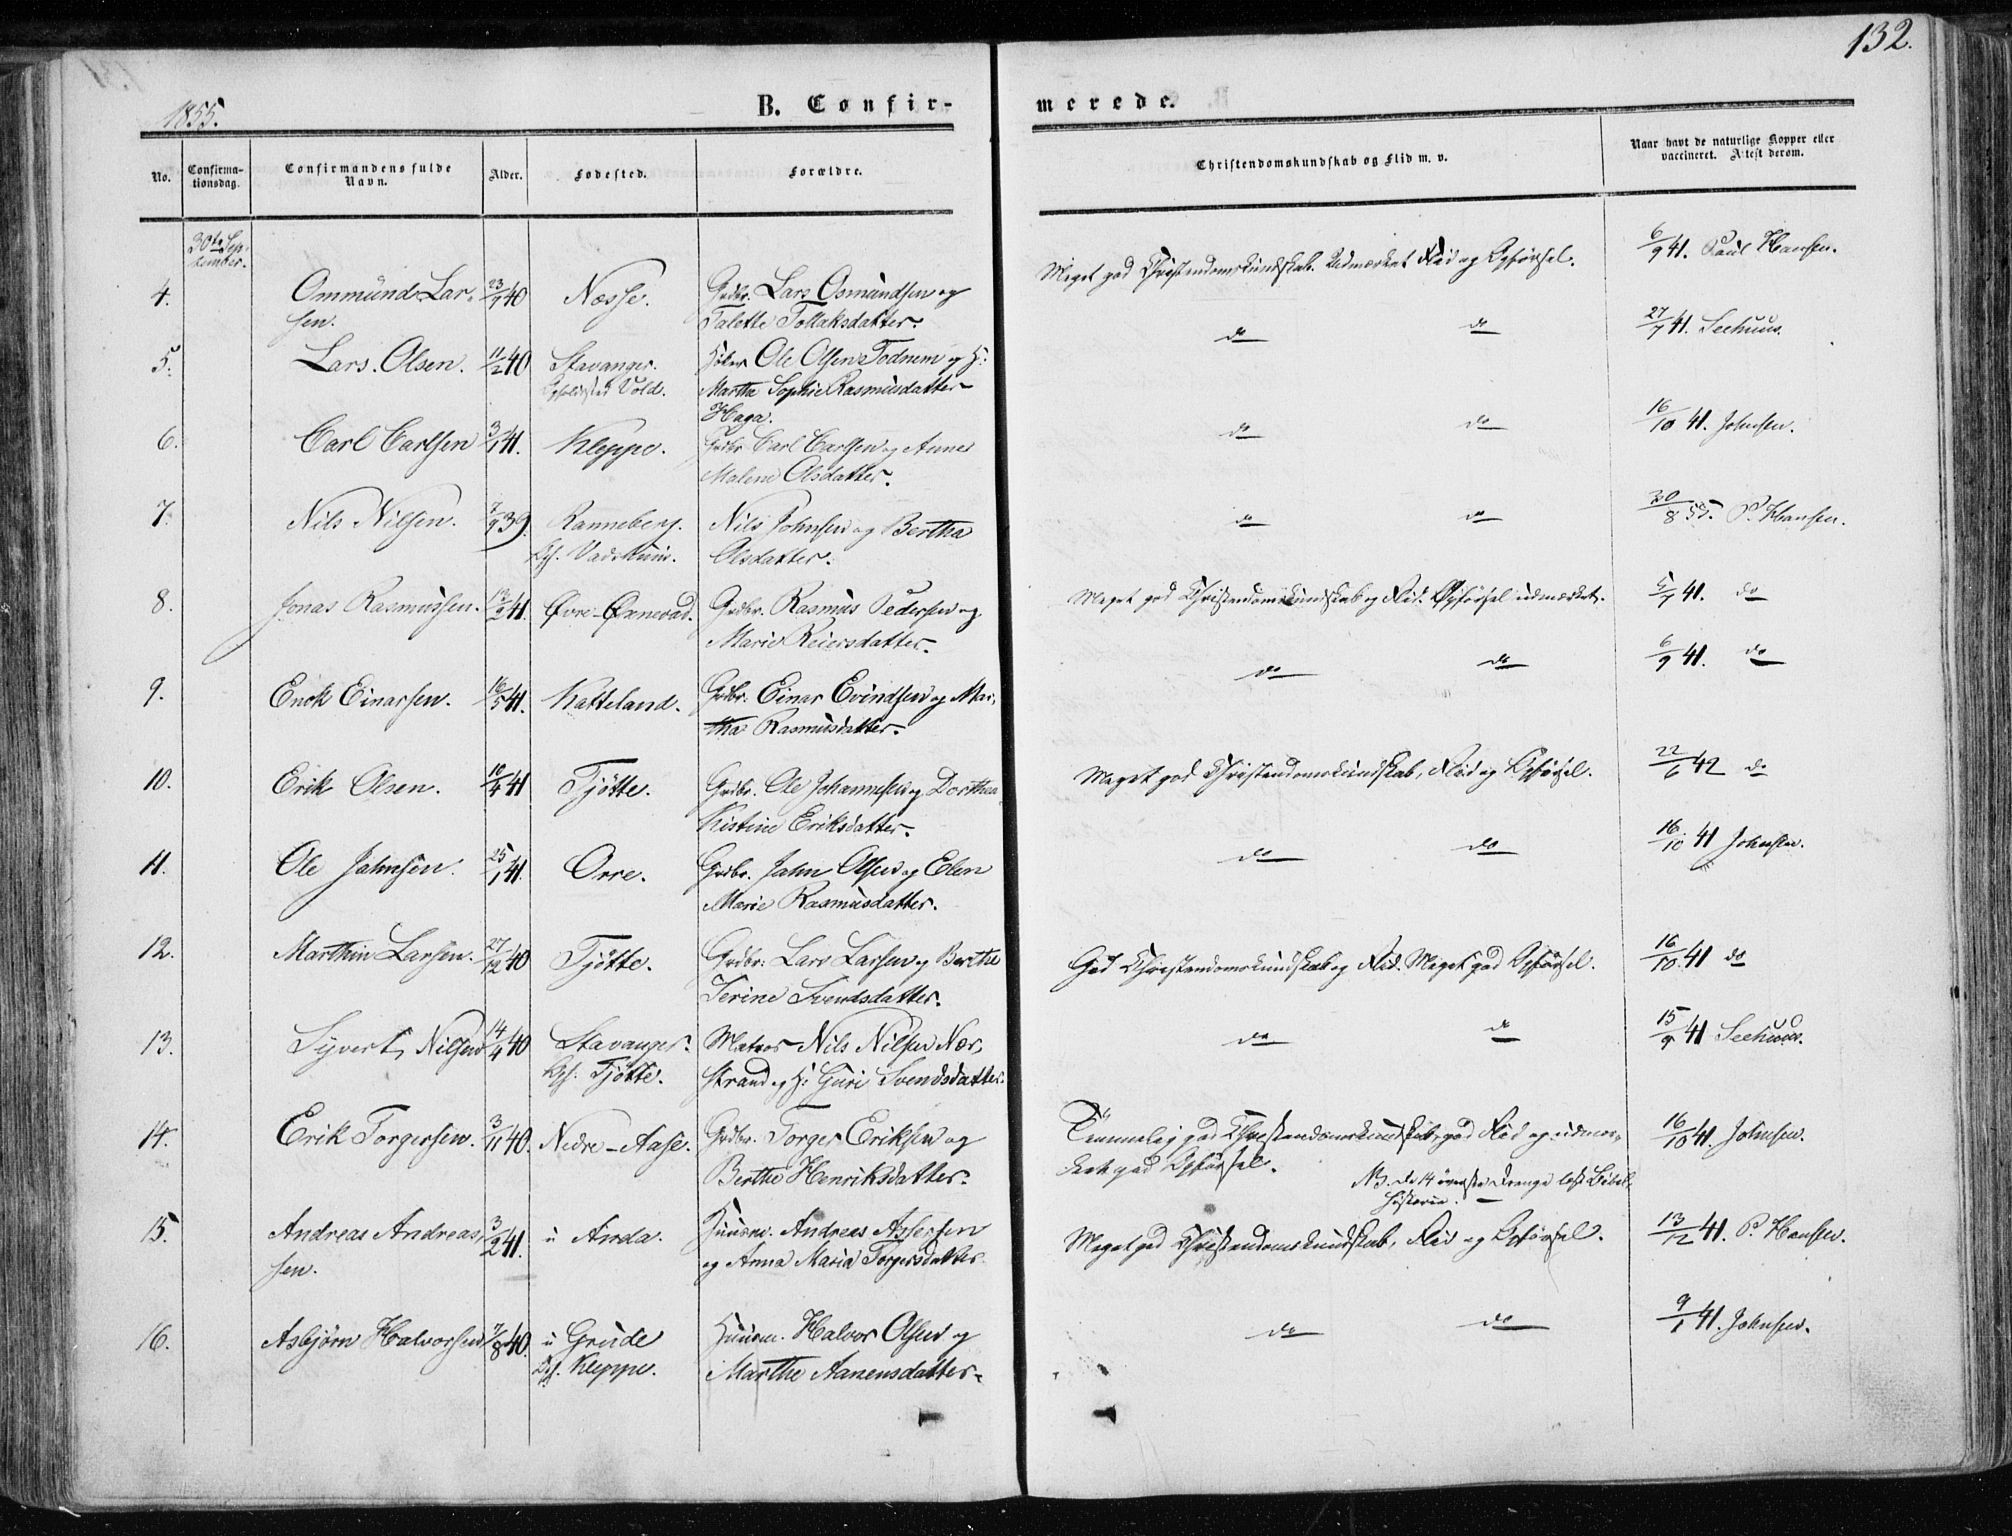 132.
1855.
B. Confirmerede.
No. Confirmationsdag. Confirmandens fulde Navn. Alder. Fødested. Forældre. Christendomskundskab og Flid m. v. Naar havt de naturlige Kopper eller vaccineret. Attest derom.
30te September.
4. Ommund Lar- 23/9 40 Næsse. Grdbr. Lars Osmundsen og Meget god Christendomskundskab. Udmærket Flid og Opførsel. 6/9 41. Paul Hansen.
sen. Talette Tollaksdatter.
5. Lars Olsen. 11/2 40 Stavanger. Ole Olsen Todnem og H: do do 27/7 41. Seehuus.
Opholdssted Vold. Martha Sophie Rasmusdatter
Haga.
6. Carl Carlsen 3/1 41. Kleppe. Grdbr. Carl Carlsen og Anne do do 16/10 41. Johnsen.
Malene Olsdatter.
7. Nils Nilsen. 7/9 39. Ranneberg. Nils Johnsen og Bertha do do 30/8 55. P. Hansen.
Oh. Olsdatter.
8. Jonas Rasmussen. 13/2 41. Øvre-Øxnevad. Grdbr. Rasmus Pedersen og Meget god Christendomskundskab og Flid. Opførsel udmærket. 41. do
Marie Reiersdatter.
9. Enok Einarsen. 16/5 41. Katteland. Grdbr. Einar Evindsen og Mar- do do 6/9 41. do
tha Rasmusdatter.
10. Erik Olsen. 41 Tjøtte. Grdbr. Ole Johannesen og Dorthea Meget god Christendomskundskab, Flid og Opførsel. 22/6 42 do
Kistine Eriksdatter.
11. Ole Jahnsen. 25/1 41. Orre. Grdbr. Jahn Olsen og Elen do do 16/10 41 Johnsen.
Marie Rasmusdatter.
12. Marthin Larsen. 27/12 40 Tjøtte. Grdbr. Lars Larsen og Berthe God Christendomskundskab og Flid. Meget god Opførsel. 16/10 41 do
Serine Svendsdatter.
13. Syvert Nilsen 14/4 40 Stavanger. Matros Nils Nilsen Nær- do do 15/9 41 Seehuus.
Oh. Tjøtte. strand og H: Guri Svendsdatter.
14. Erik Torgersen. 3/11 40. Nedre-Aase. Grdbr. Torger Eriksen og Temmelig god Christendomskundskab, god Flid og udmær- 16/10 41. Johnsen.
Berthe Henriksdatter. ket god Opførsel.
NB. de 14 øverste Drenge læst Bibel-
historie.
15. Andreas Andreas- 3/2 41. u Anda. Huusm. Andreas Assersen Meget god Christendomskundskab, Flid og Opførsel. 13/12 41. P. Hansen.
sen. og Anna Maria Torgersdatter
16. Asbjørn Halvorsen 7/8 40. u Grude Huusm. Halvor Olsen og do do 9/1 41. Johnsen.
Oh. Kleppe. Marthe Aanensdatter.